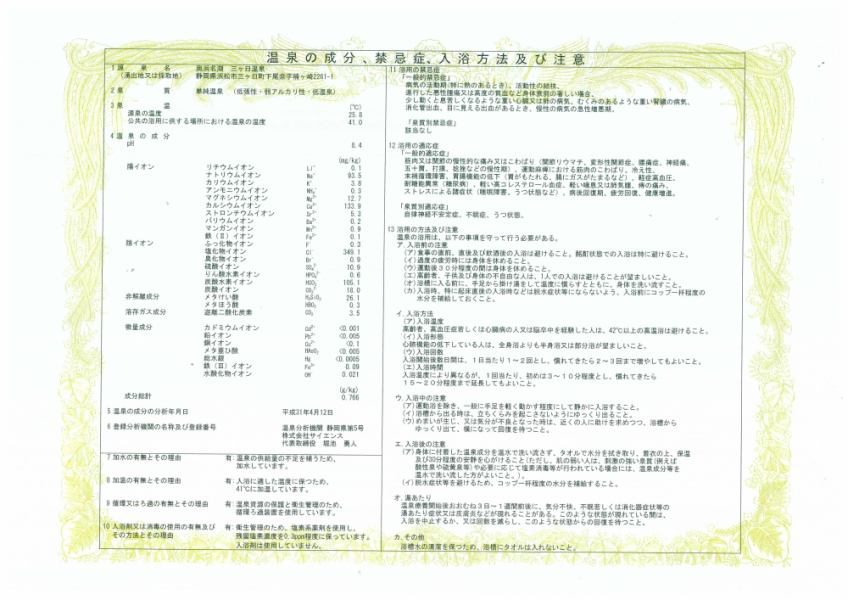 温泉の成分、禁忌症、入浴方法及び注意
1 源泉名 奥浜名湖 三ヶ日温泉
(湧出地又は採取地) 静岡県浜松市三ヶ日町下尾奈字楠ヶ崎2251-1
2 泉質 単純温泉 (低張性・弱アルカリ性・低温泉)
3 泉温 (℃)
源泉の温度 25.8
公共の浴用に供する場所における温泉の温度 41.0
4 温泉の成分
pH 8.4
(mg/kg)
陽イオン リチウムイオン Li⁺ 0.1
ナトリウムイオン Na⁺ 93.5
カリウムイオン K⁺ 3.8
アンモニウムイオン NH₄⁺ 0.3
マグネシウムイオン Mg²⁺ 12.7
カルシウムイオン Ca²⁺ 133.9
ストロンチウムイオン Sr²⁺ 5.3
バリウムイオン Ba²⁺ 0.2
マンガンイオン Mn²⁺ 0.9
鉄(Ⅱ)イオン Fe²⁺ 0.1
陰イオン ふっ化物イオン F⁻ 0.3
塩化物イオン Cl⁻ 349.1
臭化物イオン Br⁻ 0.9
硫酸イオン SO₄²⁻ 10.9
りん酸水素イオン HPO₄²⁻ 0.6
炭酸水素イオン HCO₃⁻ 105.1
炭酸イオン CO₃²⁻ 18.0
非解離成分 メタけい酸 H₂SiO₃ 26.1
メタほう酸 HBO₂ 0.3
溶存ガス成分 遊離二酸化炭素 CO₂ 3.5
微量成分 カドミウムイオン Cd²⁺ <0.001
鉛イオン Pb²⁺ <0.005
銅イオン Cu²⁺ <0.1
メタ亜ひ酸 HAsO₂ <0.005
総水銀 Hg <0.0005
鉄(Ⅲ)イオン Fe³⁺ 0.09
水酸化物イオン OH⁻ 0.021
(g/kg)
成分総計 0.766
5 温泉の成分の分析年月日 平成31年4月12日
6 登録分析機関の名称及び登録番号 温泉分析機関 静岡県第5号
株式会社サイエンス
代表取締役 堀池 勇人
7 加水の有無とその理由 有:温泉の供給量の不足を補うため、
加水しています。
8 加温の有無とその理由 有:入浴に適した温度に保つため、
41℃に加温しています。
9 循環又はろ過の有無とその理由 有:温泉資源の保護と衛生管理のため、
循環ろ過装置を使用しています。
10 入浴剤又は消毒の使用の有無及び 有:衛生管理のため、塩素系薬剤を使用し、
その方法とその理由 残留塩素濃度を0.3ppm程度に保っています。
入浴剤は使用していません。
11 浴用の禁忌症
「一般的禁忌症」
病気の活動期(特に熱のあるとき)、活動性の結核、
進行した悪性腫瘍又は高度の貧血など身体衰弱の著しい場合、
少し動くと息苦しくなるような重い心臓又は肺の病気、むくみのあるような重い腎臓の病気、
消化管出血、目に見える出血があるとき、慢性の病気の急性増悪期、
「泉質別禁忌症」
該当なし
12 浴用の適応症
「一般的適応症」
筋肉又は関節の慢性的な痛み又はこわばり(関節リウマチ、変形性関節症、腰痛症、神経痛、
五十肩、打撲、捻挫などの慢性期)、運動麻痺における筋肉のこわばり、冷え性、
末梢循環障害、胃腸機能の低下(胃がもたれる、腸にガスがたまるなど)、軽症高血圧、
耐糖能異常(糖尿病)、軽い高コレステロール血症、軽い喘息又は肺気腫、痔の痛み、
ストレスによる諸症状(睡眠障害、うつ状態など)、病後回復期、疲労回復、健康増進、
「泉質別適応症」
自律神経不安定症、不眠症、うつ状態、
13 浴用の方法及び注意
温泉の浴用は、以下の事項を守って行う必要がある。
ア. 入浴前の注意
(ア)食事の直前、直後及び飲酒後の入浴は避けること。酩酊状態での入浴は特に避けること。
(イ)過度の疲労時には身体を休めること。
(ウ)運動後30分程度の間は身体を休めること。
(エ)高齢者、子供及び身体の不自由な人は、1人での入浴は避けることが望ましいこと。
(オ)浴槽に入る前に、手足から掛け湯をして温度に慣らすとともに、身体を洗い流すこと。
(カ)入浴時、特に起床直後の入浴時などは脱水症状等にならないよう、入浴前にコップ一杯程度の
水分を補給しておくこと。
イ. 入浴方法
(ア)入浴温度
高齢者、高血圧症若しくは心臓病の人又は脳卒中を経験した人は、42℃以上の高温浴は避けること。
(イ)入浴形態
心肺機能の低下している人は、全身浴よりも半身浴又は部分浴が望ましいこと。
(ウ)入浴回数
入浴開始後数日間は、1日当たり1~2回とし、慣れてきたら2~3回まで増やしてもよいこと。
(エ)入浴時間
入浴温度により異なるが、1回当たり、初めは3~10分程度とし、慣れてきたら
15~20分程度まで延長してもよいこと。
ウ. 入浴中の注意
(ア)運動浴を除き、一般に手足を軽く動かす程度にして静かに入浴すること。
(イ)浴槽から出る時は、立ちくらみを起こさないようにゆっくり出ること。
(ウ)めまいが生じ、又は気分が不良となった時は、近くの人に助けを求めつつ、浴槽から
ゆっくり出て、横になって回復を待つこと。
エ. 入浴後の注意
(ア)身体に付着した温泉成分を温水で洗い流さず、タオルで水分を拭き取り、着衣の上、保温
及び30分程度の安静を心がけること(ただし、肌の弱い人は、刺激の強い泉質(例えば
酸性泉や硫黄泉等)や必要に応じて塩素消毒等が行われている場合には、温泉成分等を
温水で洗い流した方がよいこと。)。
(イ)脱水症状等を避けるため、コップ一杯程度の水分を補給すること。
オ. 湯あたり
温泉療養開始後おおむね3日~1週間前後に、気分不快、不眠若しくは消化器症状等の
湯あたり症状又は皮膚炎などが現れることがある。このような状態が現れている間は、
入浴を中止するか、又は回数を減らし、このような状態からの回復を待つこと。
カ. その他
浴槽水の清潔を保つため、浴槽にタオルは入れないこと。